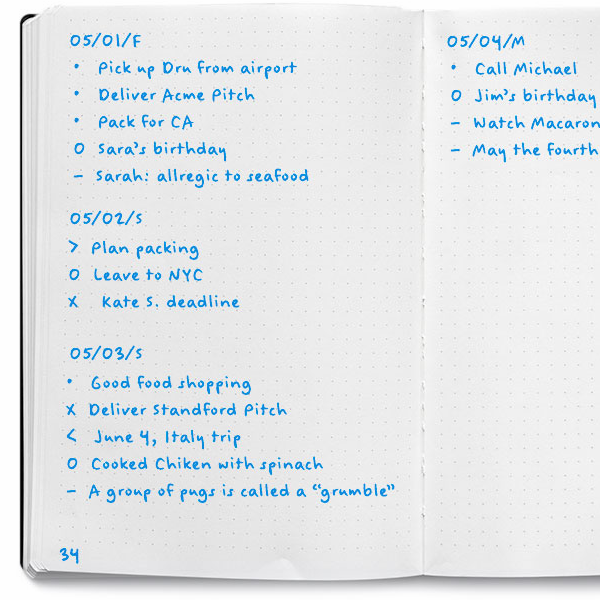 05/01/F
• Pick up Dru from airport
• Deliver Acme Pitch
• Pack for CA
O Sara's birthday
– Sarah: allregic to seafood
05/02/S
> Plan packing
O Leave to NYC
x Kate S. deadline
05/03/S
• Good food shopping
x Deliver Standford Pitch
< June 4, Italy trip
O Cooked Chiken with spinach
– A group of pugs is called a “grumble”
34
05/04/M
• Call Michael
O Jim's birthday
– Watch Macaron
– May the fourth